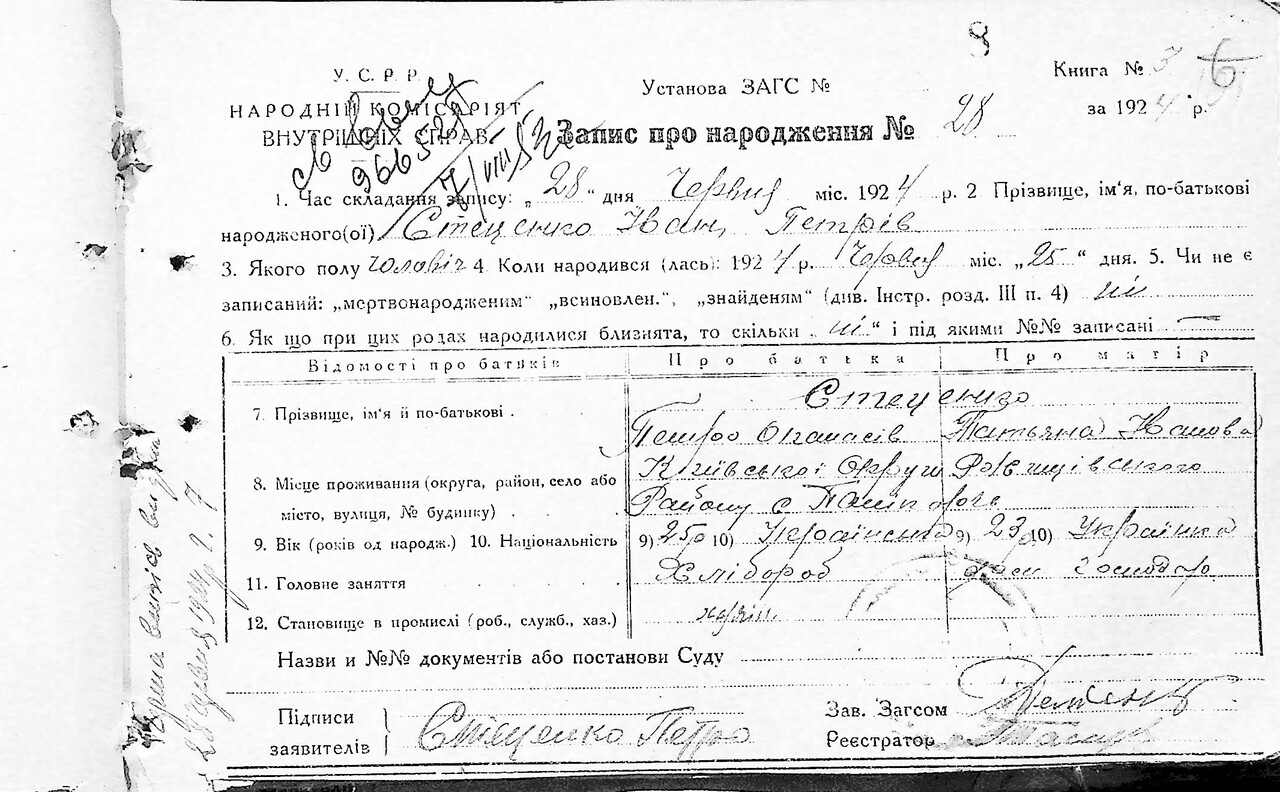 8
У. С. Р. Р.
НАРОДНІЙ КОМІСАРІЯТ
ВНУТРІШНІХ СПРАВ.
Установа ЗАГС №
Книга № 3 6
за 1924 р.
Запис про народження № 28
96652
7/VIII 52
1. Час складання запису: „28“ дня Червня міс. 1924 р. 2 Прізвище, ім'я, по-батькові
народженого(ої) Стеценко Иван Петрів
3. Якого полу Чоловіч 4. Коли народився (лась): 1924 р. Червня міс. „25“ дня. 5. Чи не є
записаний: „мертвонародженим“ „всиновлен.“, „знайденям“ (див. Інстр. розд. III п. 4) ні
6. Як що при цих родах народилися близнята, то скільки „ні“ і під якими №№ записані —
Відомості про батьків Про батька Про матір
7. Прізвище, ім'я й по-батькові . Стеценко
Петро Опанасів Татьяна Иванова
8. Місце проживання (округа, район, село або місто, вулиця, № будинку) . Київської Округи Ржищівського
Району с
9. Вік (років од народж.) 10. Національність 9) 25р 10) Українець 9) 23р 10) Українка
11. Головне заняття Хлібороб дом господар
12. Становище в промислі (роб., служб., хаз.) хазяін
Назви и №№ документів або постанови Суду
Підписи заявителів } Стеценко Петро
Зав. Загсом
Реєстратор
28 Червня 1924 р. 7